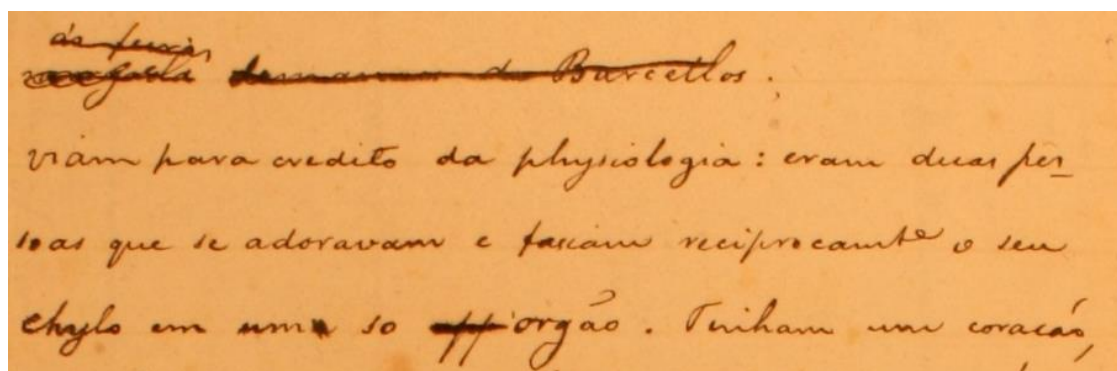 ás feiras
de Barcellos.
viam para credito da physiologia: eram duas pes-
soas que se adoravam e faziam reciprocamte o seu
chylo em um so orgão. Tinham um coração,